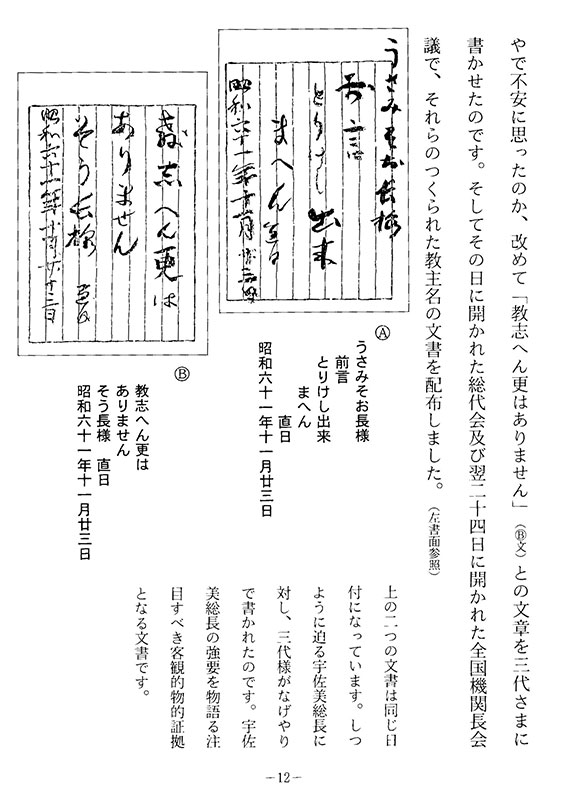 やで不安に思ったのか、改めて「教志へん更はありません」（Ⓑ文）との文章を三代さまに
書かせたのです。そしてその日に開かれた総代会及び翌二十四日に開かれた全国機関長会
議で、それらのつくられた教主名の文書を配布しました。（左書面参照）
うさみそお長様
前言
とりけし出来
まへん 直日
昭和六十一年十一月廿三日
Ⓐ
うさみそお長様
前言
とりけし出来
まへん
直日
昭和六十一年十一月廿三日
教志へん更は
ありません
そう長様 直日
昭和六十一年十一月廿三日
Ⓑ
教志へん更は
ありません
そう長様 直日
昭和六十一年十一月廿三日
上の二つの文書は同じ日
付になっています。しつ
ように迫る宇佐美総長に
対し、三代様がなげやり
で書かれたのです。宇佐
美総長の強要を物語る注
目すべき客観的物的証拠
となる文書です。
－12－